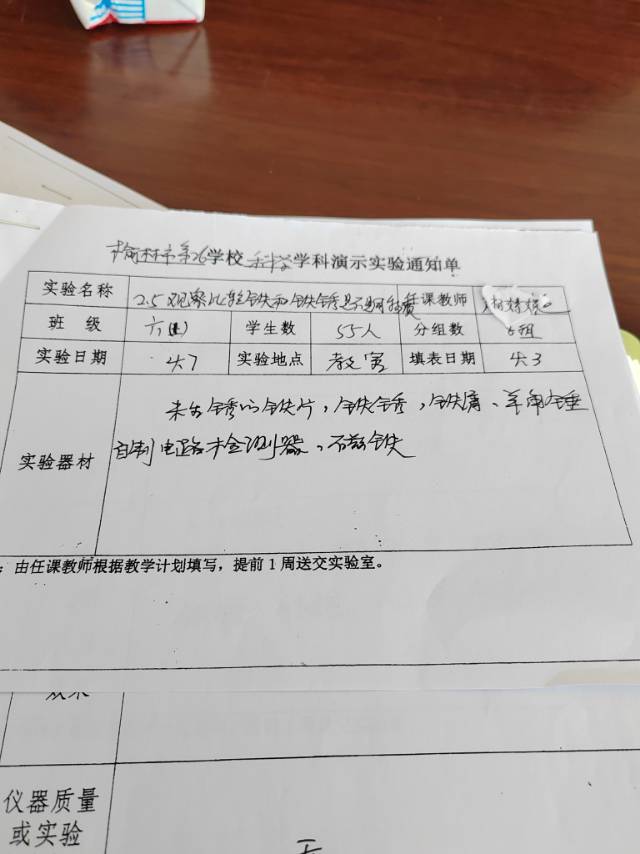 榆林市第26学校 科学 学科演示实验通知单
实验名称 2.5 观察比较铁和铁锈是不是同物质 任课教师
班 级 六(1) 学生数 55人 分组数 6组
实验日期 4.7 实验地点 教室 填表日期 4.3
实验器材
未生锈的铁片,铁锈,铁屑、羊角锤
自制电路检测器、石磁铁
:由任课教师根据教学计划填写,提前1周送交实验室。
效果
仪器质量
或实验
无